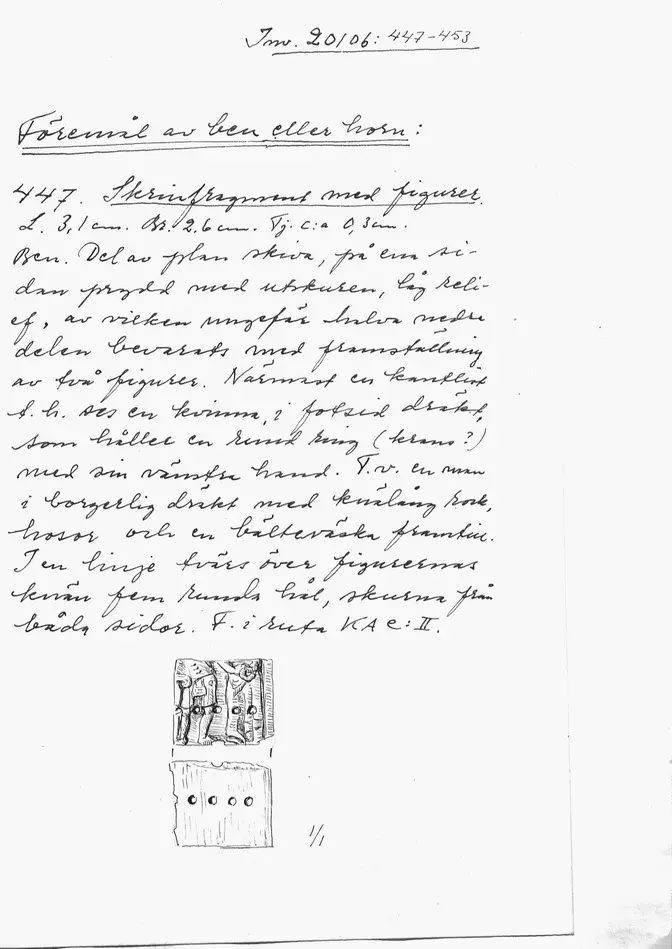 Inv. 20106: 447-453
Föremål av ben eller horn:
447. Skrinfragment med figurer.
L. 3,1 cm. Br. 2,6 cm. Tj. c:a 0,3 cm.
Ben. Del av plan skiva, på ena si-
dan prydd med utskuren, låg reli-
ef, av vilken ungefär halva nedre
delen bevarats med framställning
av två figurer. Närmast en kantlist
t.h. ses en kvinna, i fotsid dräkt,
som håller en rund ring (krans?)
med sin vänstra hand. T.v. en man
i borgerlig dräkt med knälång rock,
hosor och en bälteväska framtill.
I en linje tvärs över figurernas
knän fem runda hål, skurna från
båda sidor. F. i ruta KA e:II.
1/1